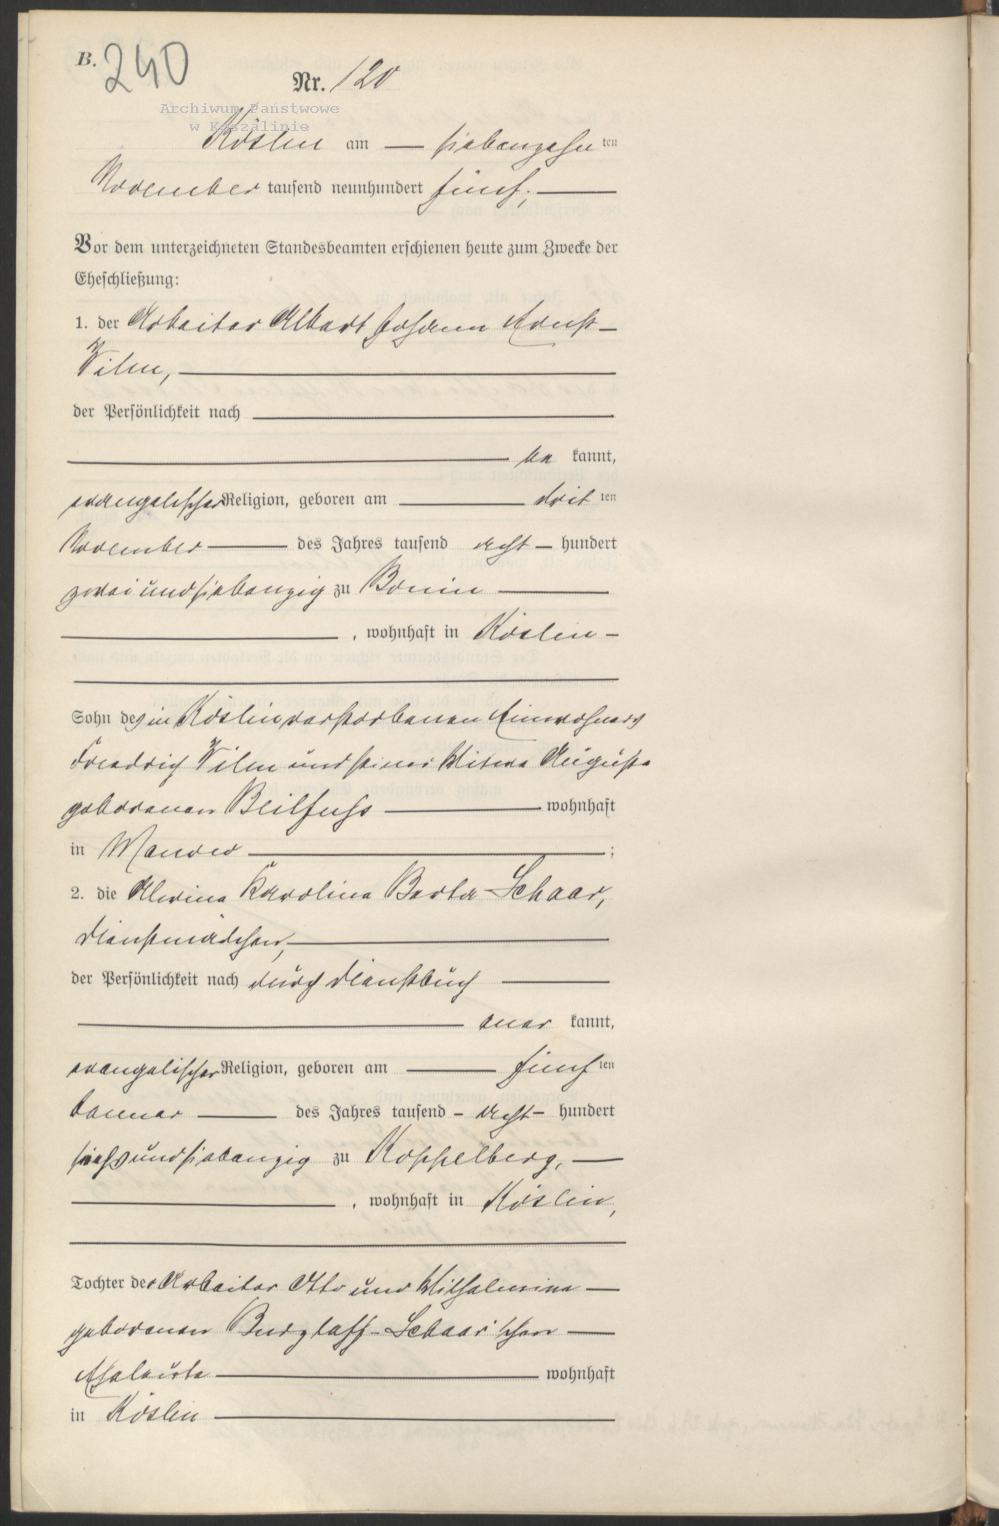 B. 240
Nr. 120
Archiwum Państwowe
w Koszalinie
Köslin am — siebenzehnten
November tausend neunhundert fünf;
Vor dem unterzeichneten Standesbeamten erschienen heute zum Zwecke der
Eheschließung:
1. der Arbeiter Albert Johann Ernst
Wilm,
der Persönlichkeit nach
be kannt,
evangelischer Religion, geboren am dritten
November des Jahres tausend acht hundert
zweiundsiebenzig zu Bonin
, wohnhaft in Köslin
Sohn des in Köslin verstorbenen Einwohners
Friedrich Wilm und seiner Witwe Auguste
geborenen Beilfuss wohnhaft
in Manow ;
2. die Alwine Karoline Berta Schaar,
Dienstmädchen,
der Persönlichkeit nach durch Dienstbuch
aner kannt,
evangelischer Religion, geboren am fünften
Januar des Jahres tausend acht hundert
sechsundsiebenzig zu Koppelberg,
, wohnhaft in Köslin,
Tochter der Arbeiter Otto und Wilhelmine
geborenen Butzlaff-Schaar'schen
Eheleute wohnhaft
in Köslin